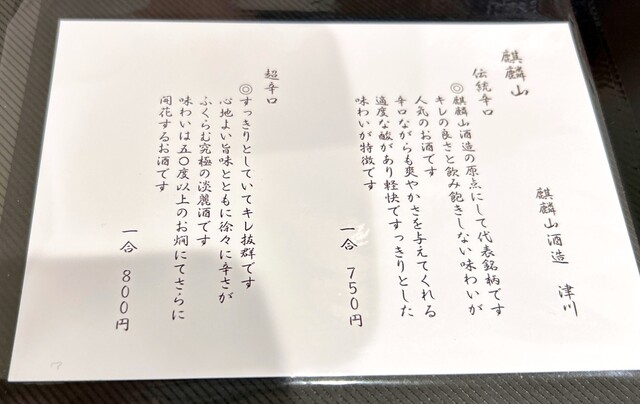 麒麟山
麒麟山酒造　津川
伝統辛口
◎麒麟山酒造の原点にして代表銘柄です
キレの良さと飲み飽きしない味わいが
人気のお酒です
辛口ながらも爽やかさを与えてくれる
適度な酸があり軽快ですっきりとした
味わいが特徴です
一合　750円
超辛口
◎すっきりとしていてキレ抜群です
心地よい旨味とともに徐々に辛さが
ふくらむ究極の淡麗酒です
味わいは五〇度以上のお燗にてさらに
開花するお酒です
一合　800円